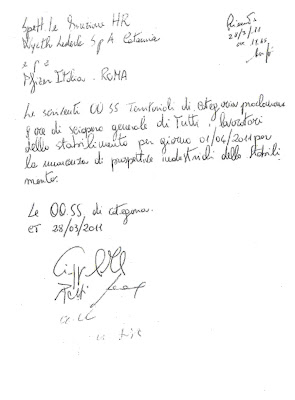 Spett.le Direzione HR
Wyeth Lederle SpA Catania
e p c
Pfizer Italia - ROMA
28/3/11
Le scriventi OO.SS Territoriali di categoria proclamano
8 ore di sciopero generale di Tutti i lavoratori
dello stabilimento per giorno 01/04/2011 per
la mancanza di prospettive industriali dello stabili
mento.
Le OO.SS. di categoria.
CT 28/03/2011